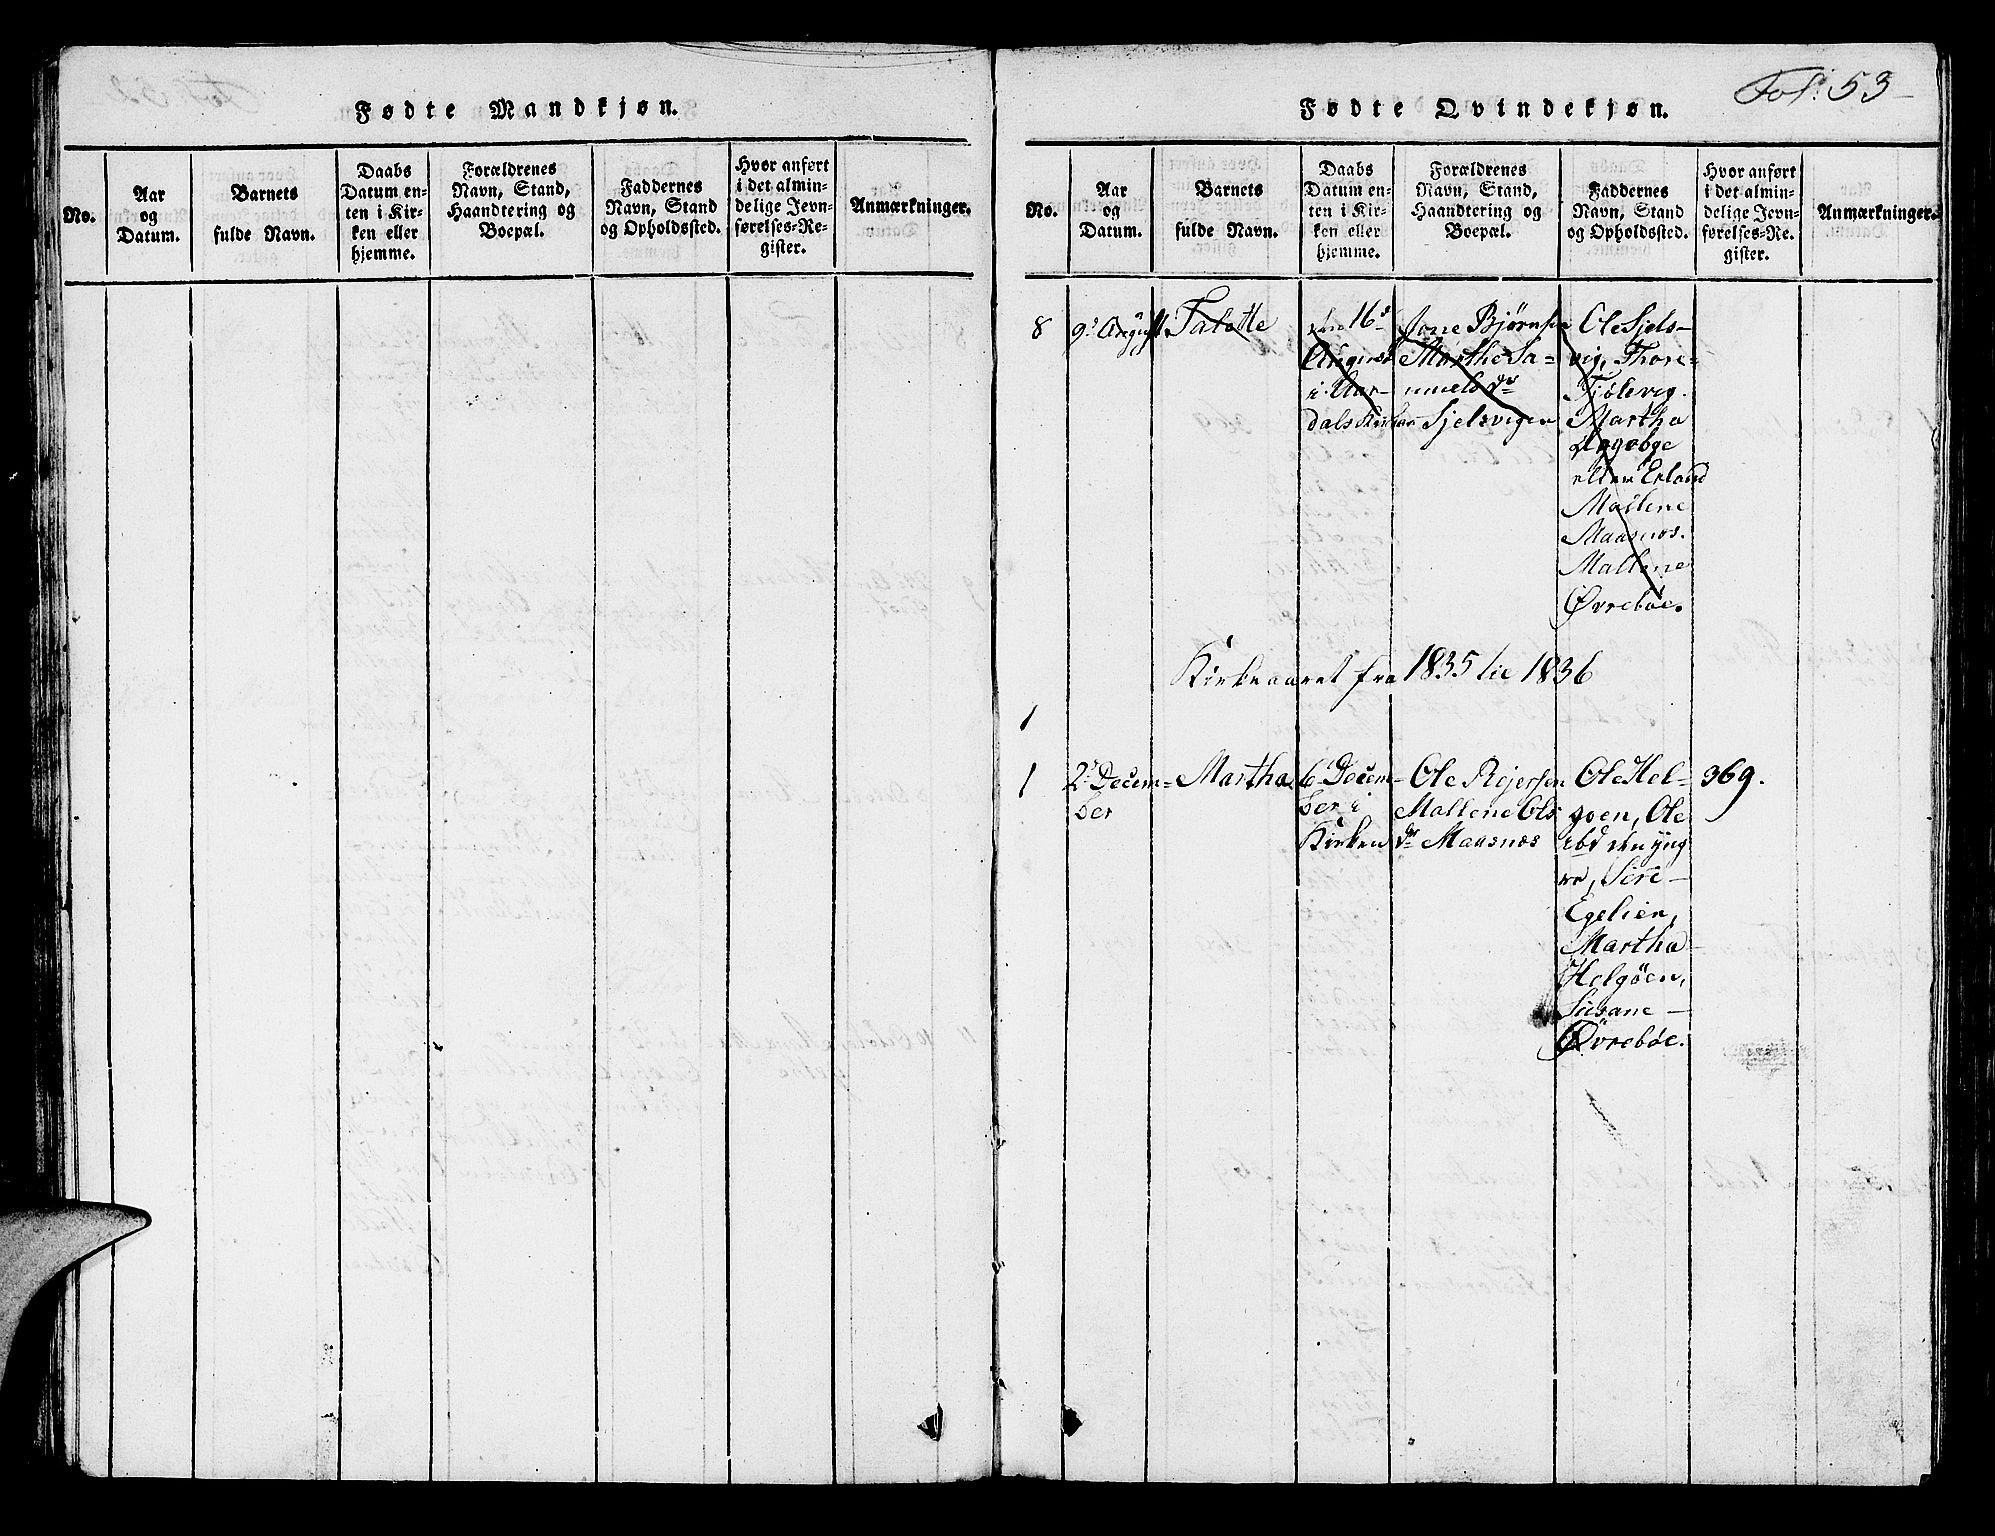 Fødte Mandkjøn.
No.
Aar
og
Datum.
Barnets
fulde Navn.
Daabs
Datum en-
ten i Kir-
ken eller
hjemme.
Forældrenes
Navn, Stand,
Haandtering og
Boepæl.
Faddernes
Navn, Stand
og Opholdssted.
Hvor anført
i det almin-
delige Jevn-
førelses-Re-
gister.
Anmærkninger.
Fol: 53
Fødte Qvindekjøn.
No.
Aar
og
Datum.
Barnets
fulde Navn.
Daabs
Datum en-
ten i Kir-
ken eller
hjemme.
Forældrenes
Navn, Stand,
Haandtering og
Boepæl.
Faddernes
Navn, Stand
og Opholdssted.
Hvor anført
i det almin-
delige Jevn-
førelses-Re-
gister.
Anmærkninger.
8
9d August
Talette
den 16d
August
i Aar-
dals Kirken
Jone Bjørnsen
Marthe Sa-
muelsdr
Sjelsvigen
Ole Sjels-
vig, Thore-
Tjølevig.
Martha
eller Erland
Mallene
Maasnæs.
Mallene
Øvrebøe.
Kirkeaaret fra 1835 til 1836
1
1
2d Decem-
ber
Martha
6 Decem-
ber i
Kirken
Ole Rejersen
Mallene Ols
dr Maasnæs
Ole Hel-
goen, Ole
ibd den yng
re, Sire-
Egelien,
Martha
Helgöen,
Susane-
Øvrebøe.
369.